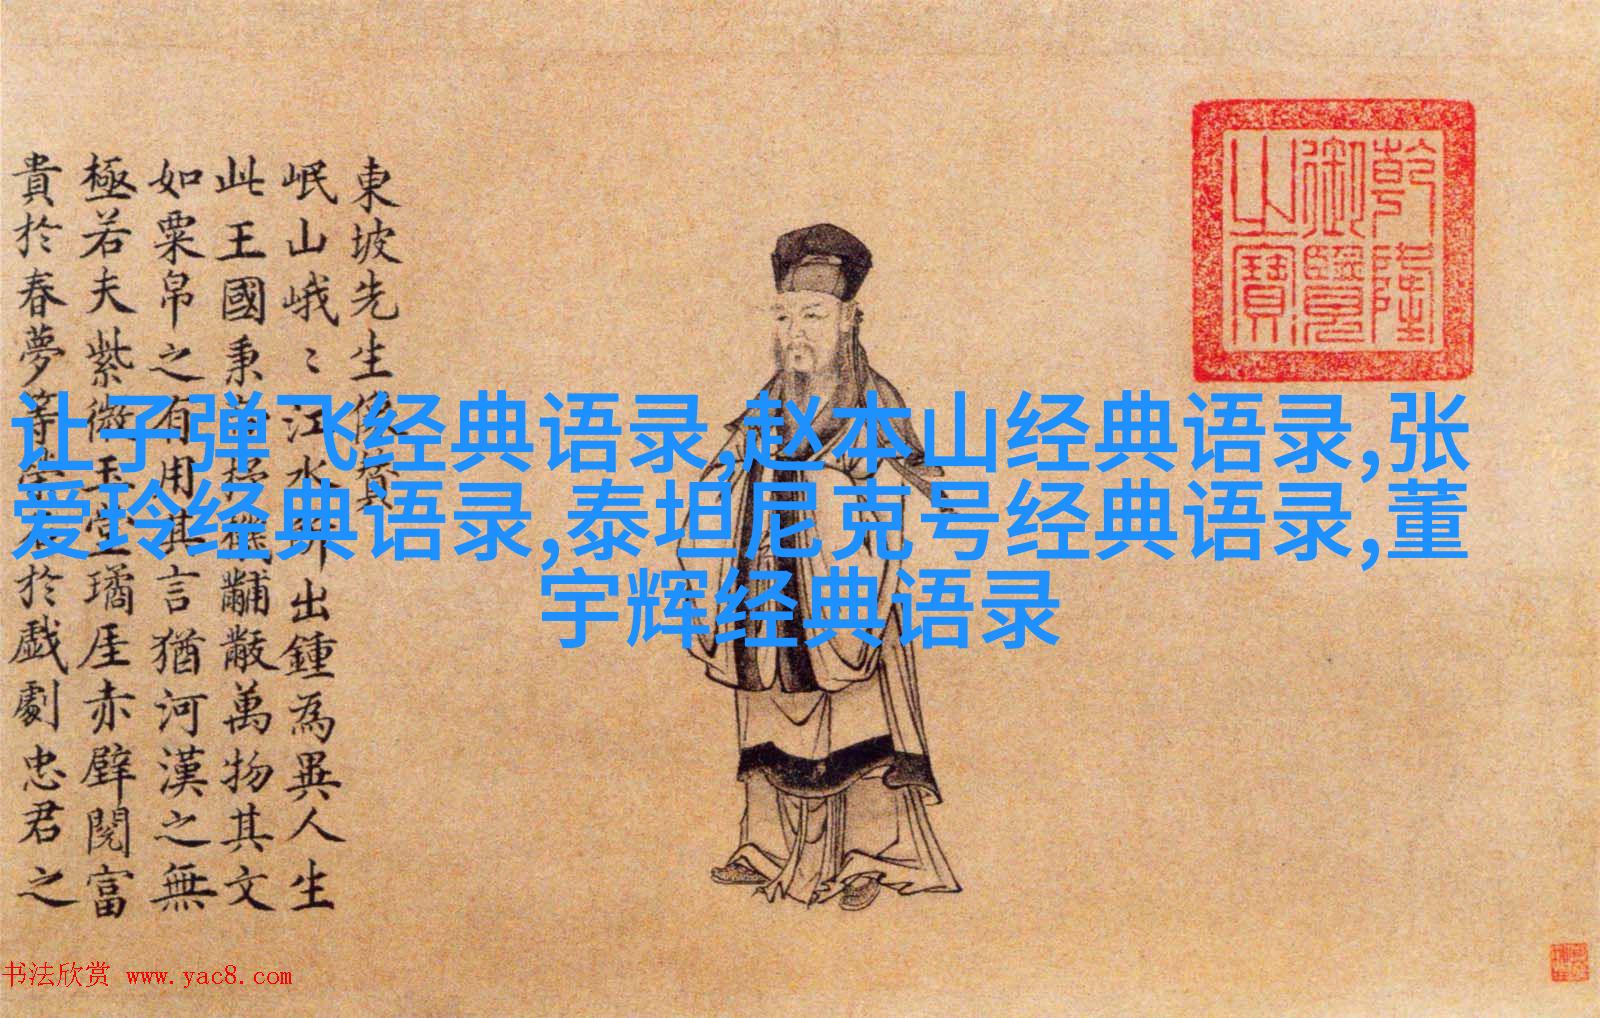 東坡先生像贊
岷山峨〻江水出鍾為異人生
此王國秉機黼黻萬物其文
如粟帛之有用其言猶河漢之無
極若夫紫微玉堂璚厓赤壁閱富
貴於春夢等於戲劇忠君之
乾隆
御覽
之寶
让子弹飞经典语录,赵本山经典语录,张
爱玲经典语录,泰坦尼克号经典语录,董
宇辉经典语录
书法欣赏 www.yac8.com